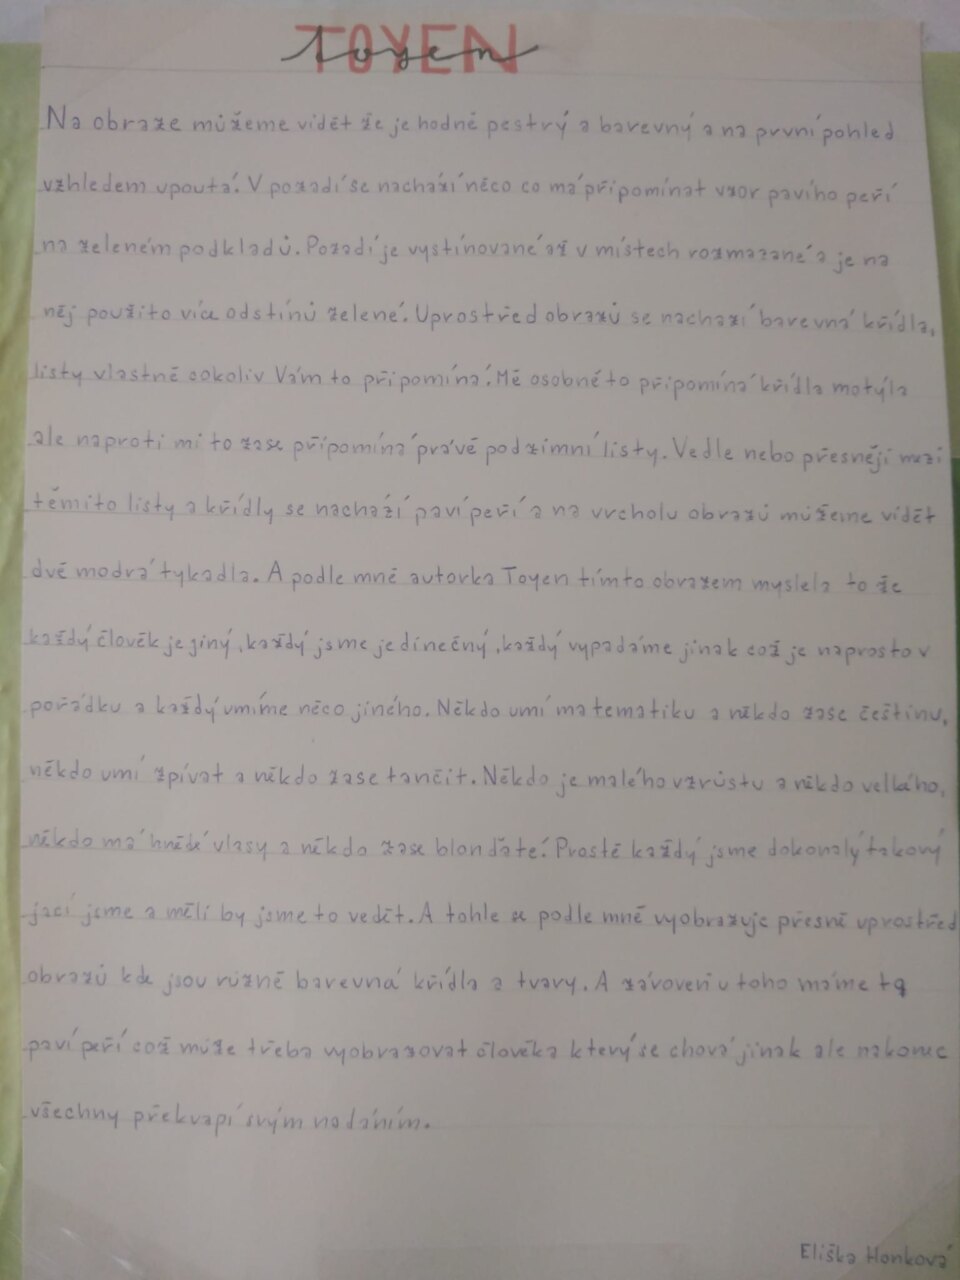 TOYEN
Toyen
Na obraze můžeme vidět že je hodně pestrý a barevný a na první pohled
vzhledem upoutá. V pozadí se nachází něco co má připomínat vzor pavího peří
na zeleném podkladů. Pozadí je vystínované až v místech rozmazané a je na
něj použito více odstínů zelené. Uprostřed obrazů se nachází barevná křídla,
listy vlastně cokoliv Vám to připomíná. Mě osobně to připomíná křídla motýla
ale naproti mi to zase připomíná právě podzimní listy. Vedle nebo přesněji mezi
těmito listy a křídly se nachází paví peří a na vrcholu obrazů můžeme vidět
dvě modrá tykadla. A podle mně autorka Toyen tímto obrazem myslela to že
každý člověk je jiný, každý jsme jedinečný, každý vypadáme jinak což je naprosto v
pořádku a každý umíme něco jiného. Někdo umí matematiku a někdo zase češtinu,
někdo umí zpívat a někdo zase tančit. Někdo je malého vzrůstu a někdo velkého,
někdo má hnědé vlasy a někdo zase blonďaté. Prostě každý jsme dokonalý takový
jací jsme a měli by jsme to vedět. A tohle se podle mně vyobrazuje přesně uprostřed
obrazů kde jsou různě barevná křídla a tvary. A zároveň u toho máme ta
paví peří což může třeba vyobrazovat člověka který se chová jinak ale nakonec
všechny překvapí svým nadáním.
Eliška Honková